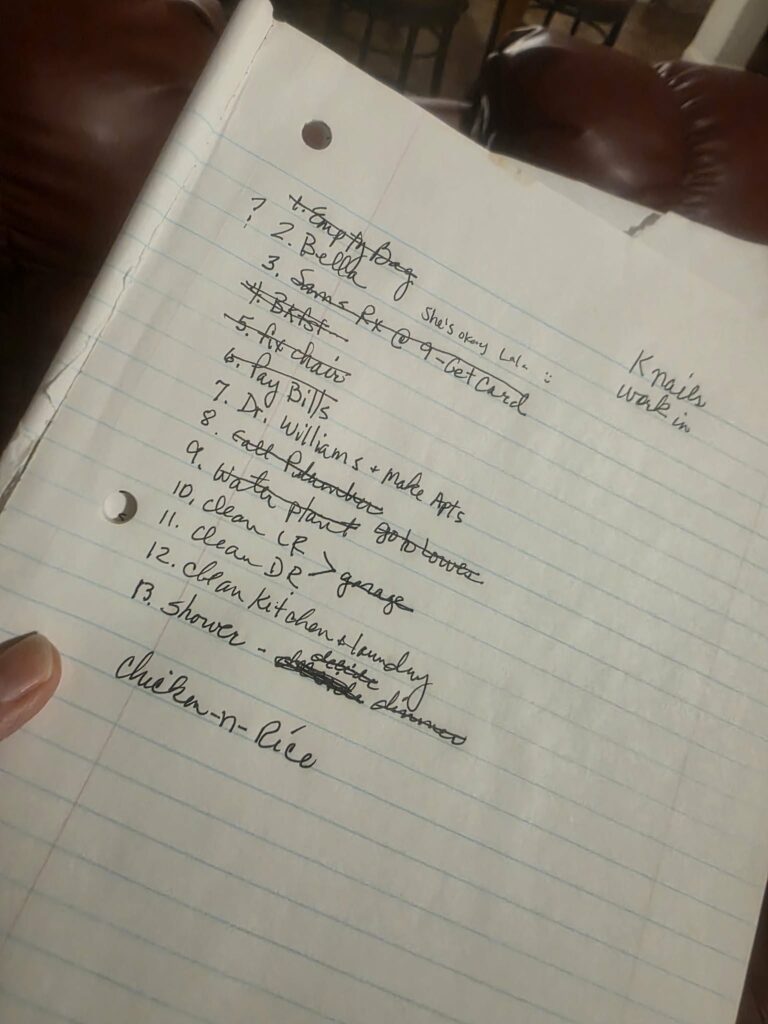 1. Empty Bag
? 2. Bella
She's okay Lala :)
3. Sams Rx @ 9-Get Card
4. Bkfst
5. fix chair
6. Pay Bills
7. Dr. Williams + Make Apts
8. Call Plumber
9. Water plant go to Lowes
10. clean LR > garage
11. clean DR
12. clean Kitchen + laundry
13. Shower - decide dinner
chicken-n-Rice
K nails
work in